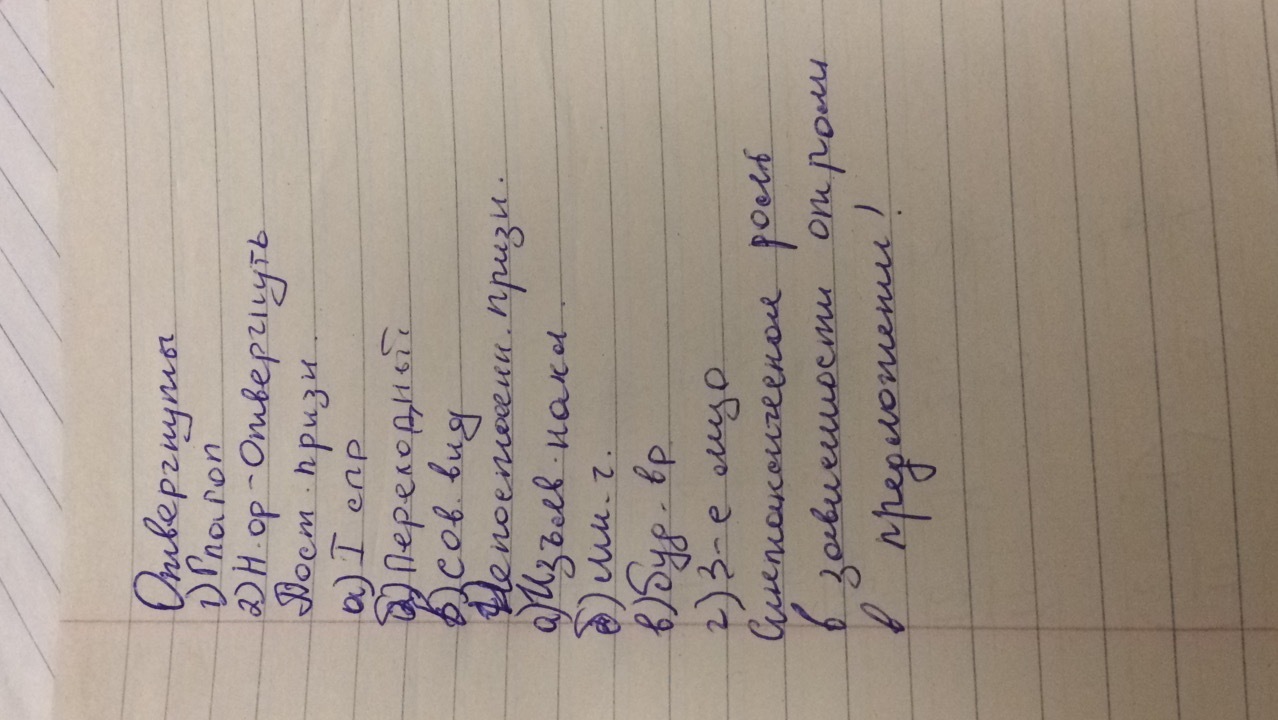 Отвергнуты
1) Глагол
2) Н.ор - Отвергнуть
Пост. призн.
а) I спр
б) Переходный
в) Сов. вид
Непостоянн. призн.
а) Изъяв. накл.
б) Мн. ч.
в) Буд. вр
г) 3-е лицо
Синтаксическая роль
в зависимости от роли
в предложении!